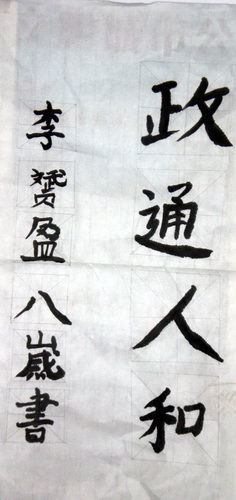 政通人和
李赟盈八歲書